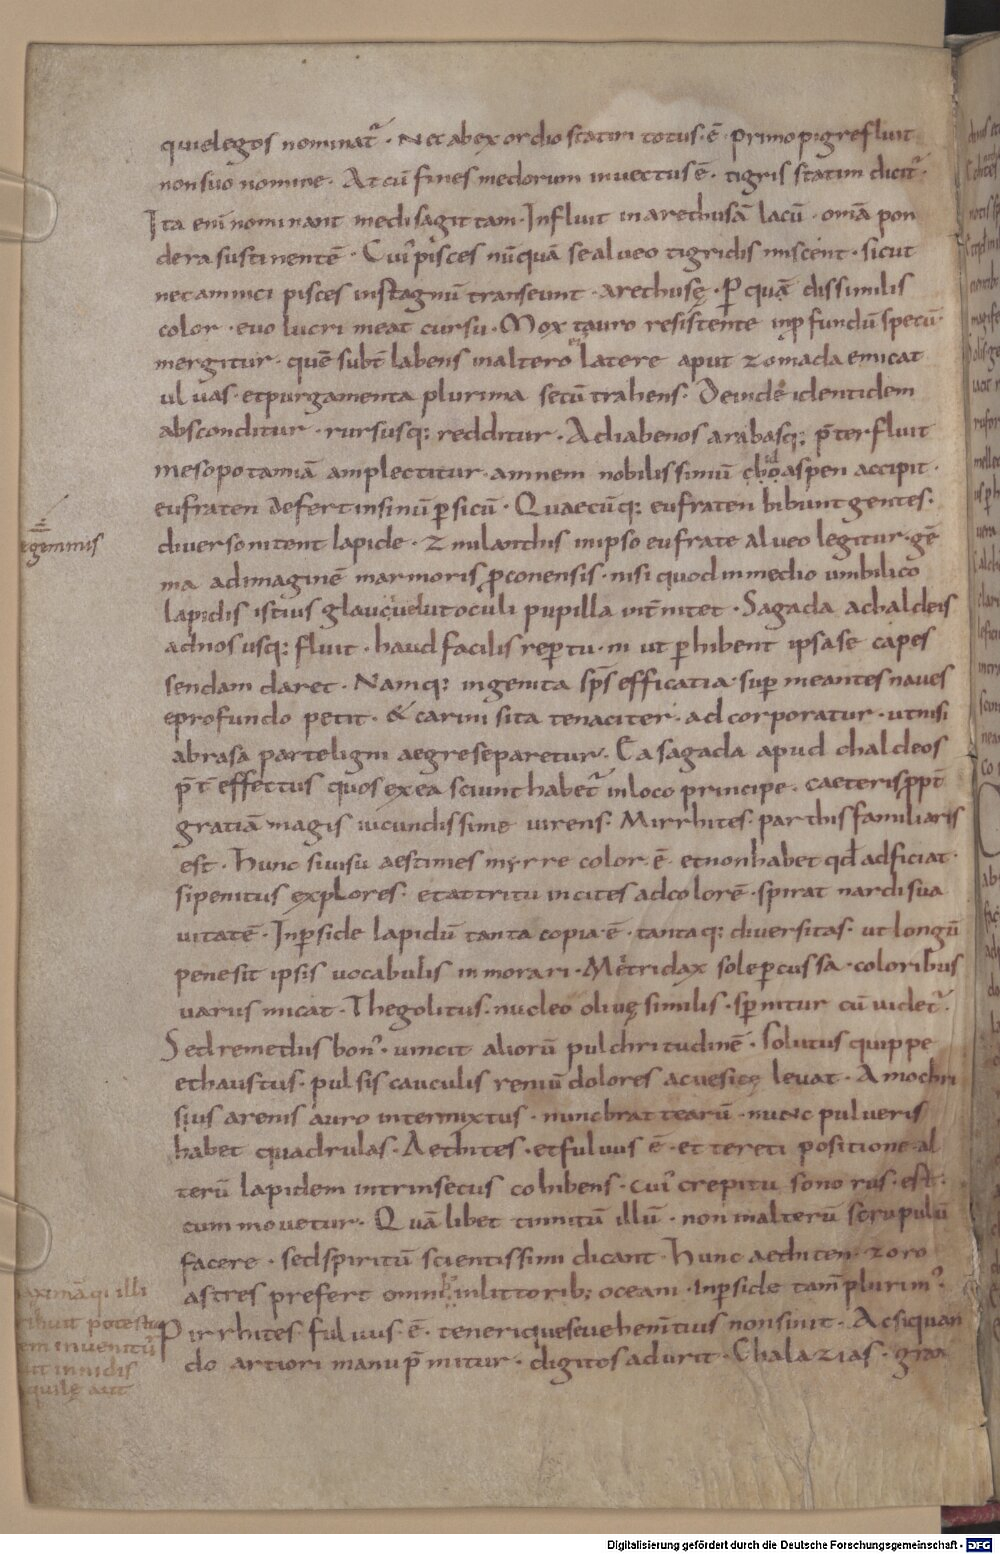 quielegos nominat᷑ · Nec ab exordio statim totus · ē · primo pigre fluit
non suo nomine · At cū fines medorum inuectus ē · tigris statim dicit᷑ ·
Ita enī nominant medi sagittam · Influit in arethusā lacū · omīa pon
dera sustinentē · Cui᷒ pisces nūquā se alueo tigridis miscent · sicut
nec amnici pisces in stagnū transeunt · arethusę · P quā dissimilis
color · euo lucri meat cursu · Mox tauro resistente in pfundū specū ·
mergitur · quē subt̄ labens in altero latere aput zomada emicat
uluas · et purgamenta plurima secū trahens · Deinde identidem
absconditur · rursusq; redditur · Adiabenos arabasq; p̄terfluit
mesopotamiā amplectitur · amnem nobilissimū choaspen accipit ·
eufraten defert in sinū psicū · Quaecūq; eufraten bibunt gentes ·
diuerso nitent lapide · Zmilanthis in ipso eufrate alueo legitur · gē
ma ad imaginē marmoris pconensis · nisi quod in medio umbilico
lapidis istius glaucū uelut oculi pupilla int̄nitet · Sagada a chaldeis
ad nos usq; fluit · haud facilis reptu · ni ut phibent ipsa se capes
sendam daret · Namq; ingenita sp̄s efficatia · sup meantes naues
e profundo petit · & carini s ita tenaciter · adcorporatur · ut nisi
abrasa parte ligni aegre separetur · Ea sagada apud chaldeos
p̄t̄ effectus quos ex ea sciunt habet᷑ in loco principe · caeteris ppt̄
gratiā magis iucundissime uirens · Mirrhites · parthis familiaris
est · Hunc si uisu aestimes myrre color ē · et non habet qd̄ adficiat ·
si penitus explores · et attritu incites ad colorē · spirat nardi sua
uitatē · In pside lapidū tanta copia ē · tantaq; diuersitas · ut longū
pene sit ipsis uocabulis inmorari · Metridax sole pcussa · coloribus
uarus micat · Thegolitus · nucleo oliuę similis · spnitur cū uidet᷑ ·
Sed remediis bon᷒ · uincit aliorū pulchritudinē · Solutus quippe
et haustus · pulsis cauculis reniū dolores ac uesicę leuat · Amochri
sius arenis auro intermixtus · nunc brattearū · nunc pulueris
habet quadrulas · Aethites · et fuluus ē · et tereti positione al
terū lapidem intrinsecus cohibens · cui᷒ crepitu sonorus · est ·
cum mouetur · Quālibet tinnitū illū · non in alterū scrupulū
facere · sed spiritū scientissimi dicant · Hunc aethiten · zoro
astres prefert omnib; in littorib; oceani · In pside tam̄ plurim᷒ ·
Pirrhites fuluus · ē · teneri que se uehem̄tius non sinit · Ac si quan
do artiori manu p̄mitur · digitos adurit · Chalazias · gran
egemmis
aximā qi illi
ribuit potesta
em inuenitū
ut in nidis
quilę aut
Digitalisierung gefördert durch die Deutsche Forschungsgemeinschaft - DFG